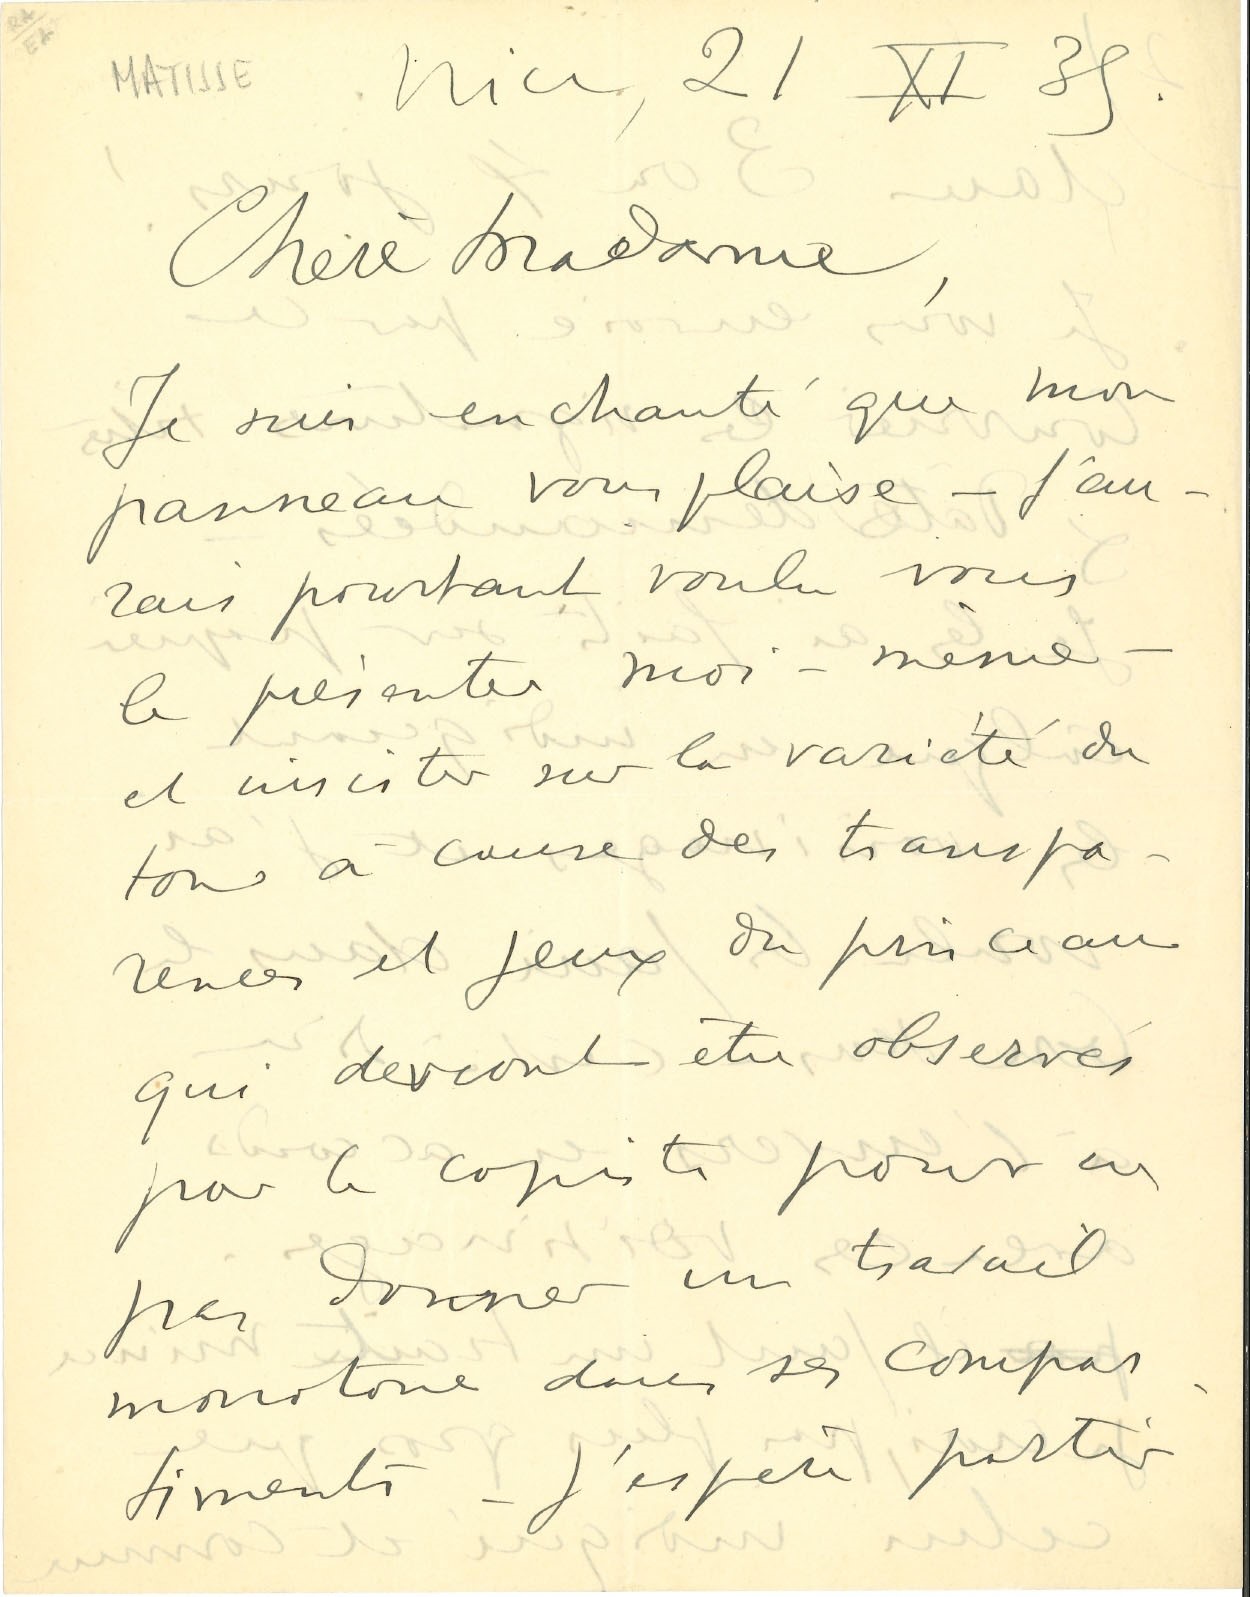 MATISSE
Nice, 21 XI 35.
Chère Madame,
Je suis enchanté que mon
panneau vous plaise – J'au-
rais pourtant voulu vous
le présenter moi-même –
et insister sur la variété du
ton à cause des transpa-
rences et jeux du pinceau
qui devront être observés
par le copiste pour en
pas donner un travail
monotone dans ses compar-
timents – J'espère partir